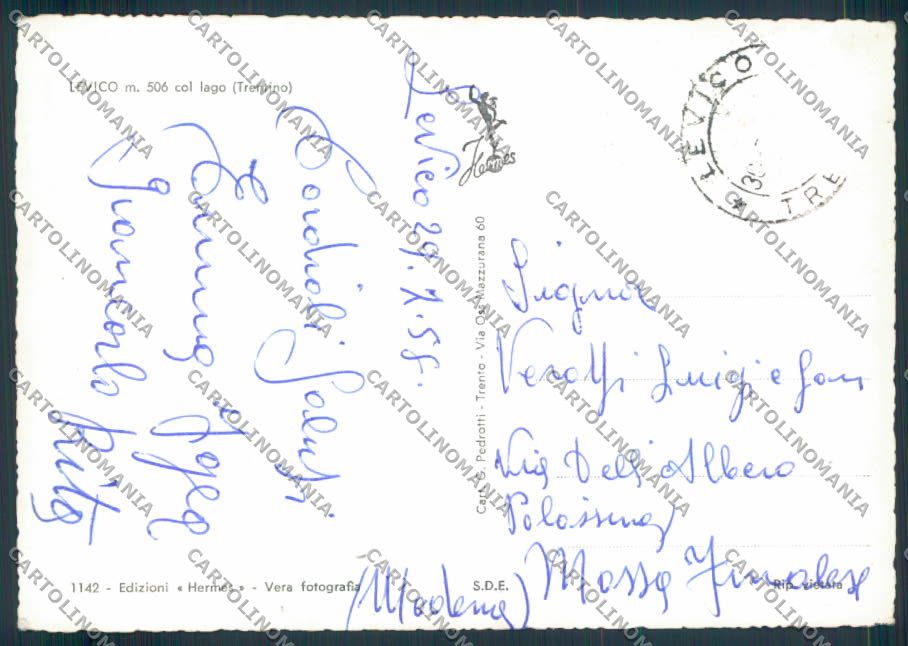 LEVICO m. 506 col lago (Trentino)
Levico 29.7.58.
Cordiali Saluti
Giancarlo Rita
Hermes
LEVICO
TRE
Cart. G. Pedrotti - Trento - Via Oss Mazzurana 60
Luigi e Fam
Via Dell Albero
Massa Finalese
(Modena)
1142 - Edizioni « Hermes » - Vera fotografia
S.D.E.
Rip. vietata
CARTOLINOMANIA